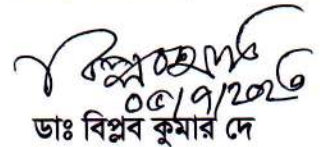 ০৫/৭/২০২৩
ডাঃ বিপ্লব কুমার দে